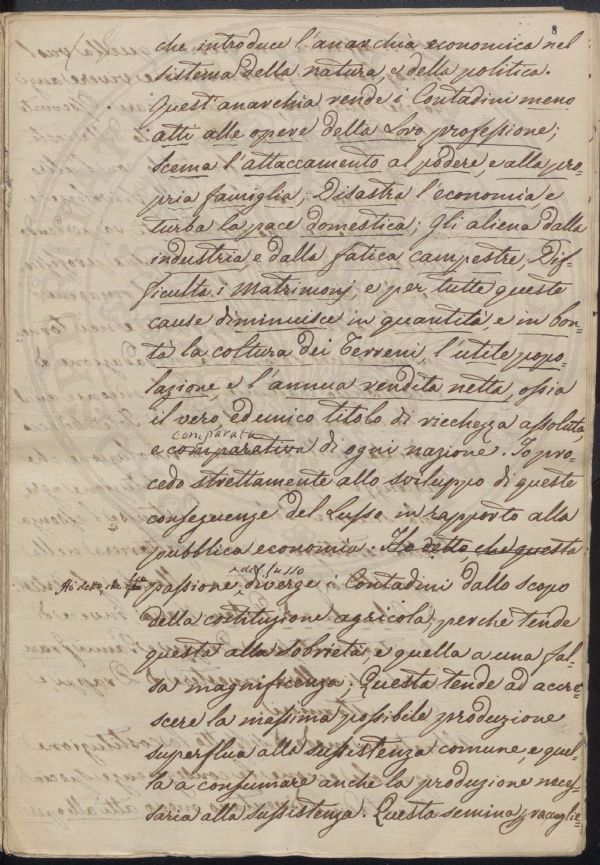 8
che introduce l'anarchia economica nel
sistema della natura, e della politica.
Quest'anarchia rende i Contadini meno
atti alle opere della Loro professione;
scema l'attaccamento al podere, e alla pro-
pria famiglia; Disastra l'economia, e
turba la pace domestica; gli aliena dalla
industria, e dalla fatica campestre; Dif-
ficulta i Matrimonj, e per tutte queste
cause diminuisce in quantità, e in bon-
tà la coltura dei Terreni l'utile popo-
lazione, e l'annua rendita netta, ossia
il vero, ed unico titolo di ricchezza assoluta,
comparata
e comparativa di ogni nazione. Io pro-
cedo strettamente allo sviluppo di queste
conseguenze del Lusso in rapporto alla
pubblica economia. Ho detto, che questa
del lusso
Ho detto, che
passione diverge i Contadini dallo scopo
della costituzione agricola, perche tende
questa alla sobrietà e quella a una fal-
sa magnificenza; Questa tende ad accre-
scere la massima possibile produzione
superflua alla sussistenza comune, e quel-
la a consumare anche la produzione neces-
saria alla sussistenza. Questa semina, e raccoglie